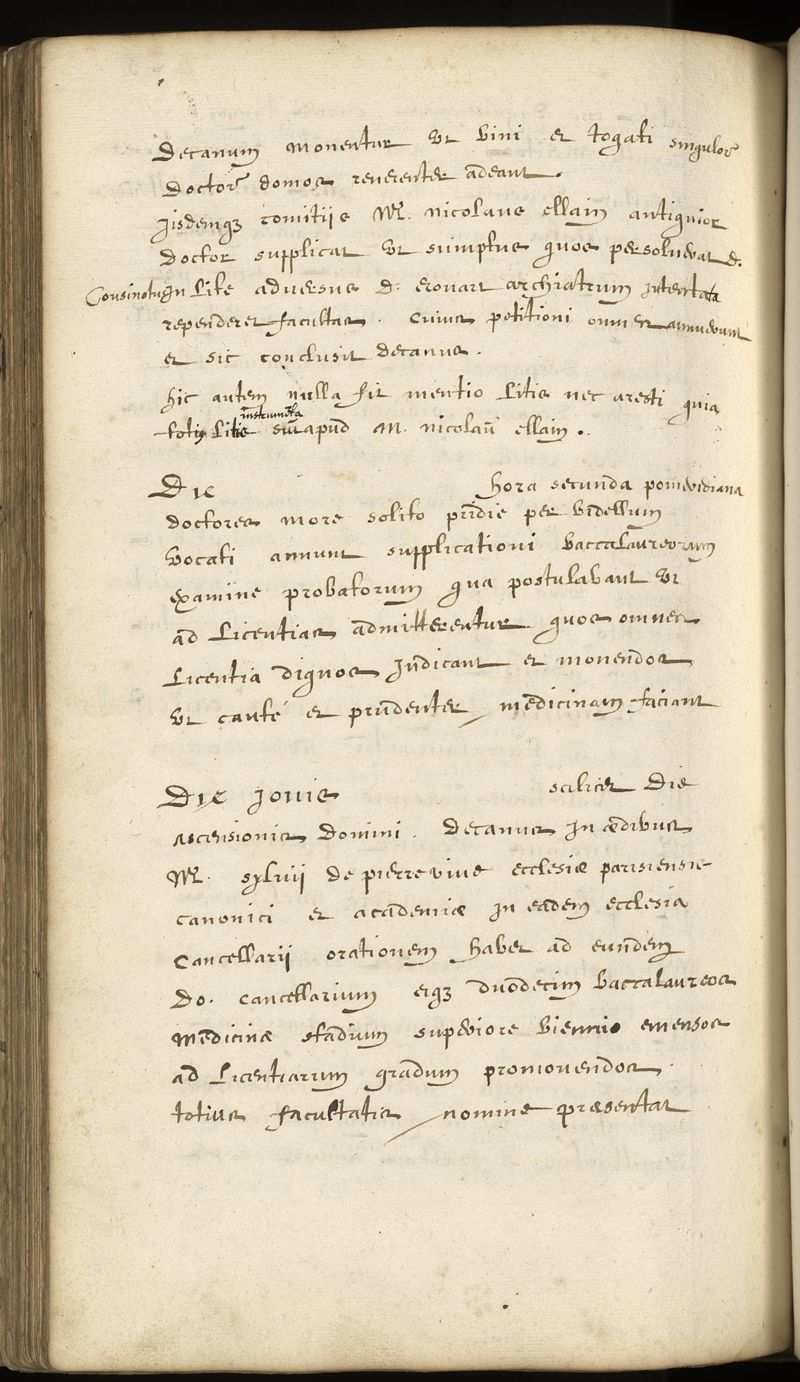 Decanum monentur ut bini et togati singulor̃
doctor̃ domos reverenter adeant.
Jisdemqȝ comitijs M. nicolaus ellain antiquior
doctor supplicat ut sumptus quos persoluerat d.
Cousinotus In lite adversus d. erouart archiatrum intentata
rependeret facultas. Cuius petitioni omnes annuerunt
et sic conclusit decanus.
hic autem nulla fit mentio litis nec aresti quia
totiꝰ litis instrumẽta sũt apud M. nicolaũ ellain.
Die hora secunda pomeridiana
doctores more solito pridie per bidellum
vocati annunt supplicationi baccalaureorum
examine probatorum qua postulabant ut
ad Licentias admitterentur quos omnes
Licentia dignos Judicant et monendos
ut cautè et prudenter medicinam faciant
Die Jouis scilicet Die
Ascensionis Domini. Decanus In ædibus
M. sylvii de pierrevive ecclesiæ parisiensis
canonici et academiæ in eadem ecclesia
Cancellarii orationem habet ad eundem
Do. cancellarium eiqȝ duodecim baccalaureos
medicinæ stadium superiore biennio emensos
ad Licentiarum gradum promovendos
totius facultatis nomine præsentat